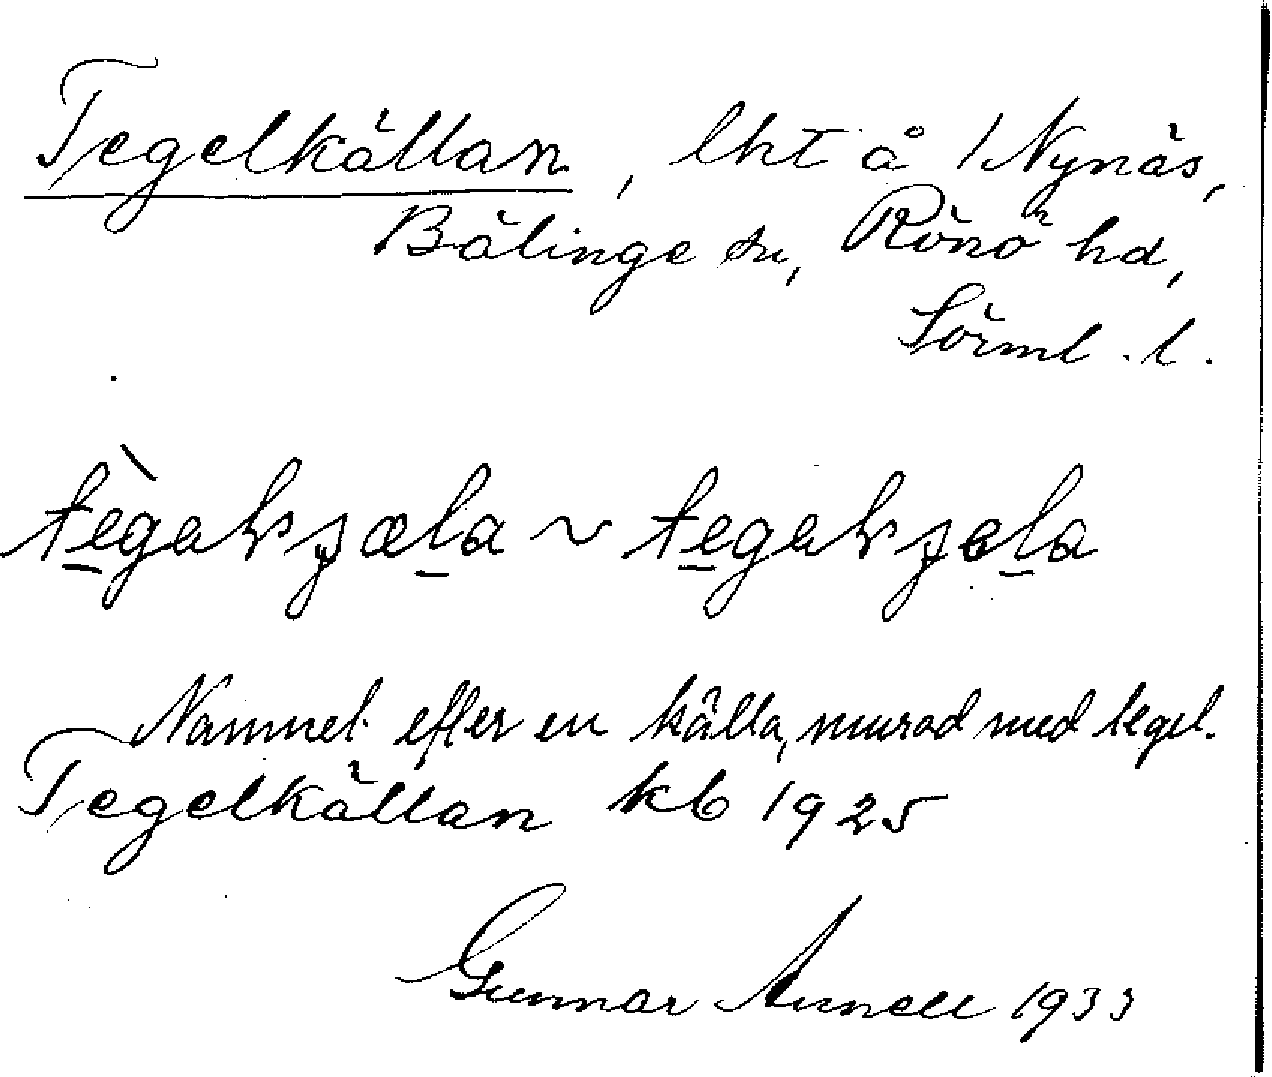 Tegelkällan, lht å 1 Nynäs,
Bälinge sn, Rönö hd,
Sörml. l.
tègəlsɟæla ~ tegəlsɟela
Namnet efter en källa, murad med tegel.
Tegelkällan kb 1925
Gunnar Annell 1933